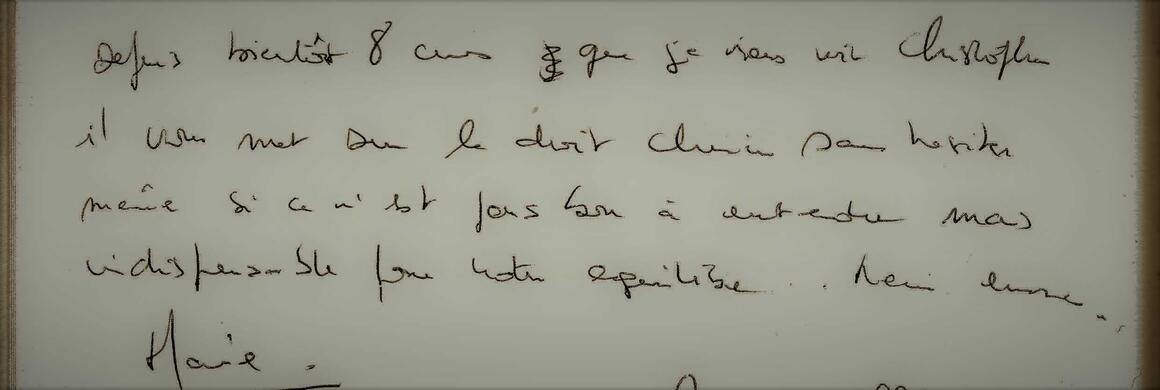 Depuis bientôt 8 ans que je viens voir Christophe
il vous met sur le droit chemin sans hesiter
même si ce n'est pas bon à entendre mais
indispensable pour notre equilibre .. Merci encore ..
Marie .